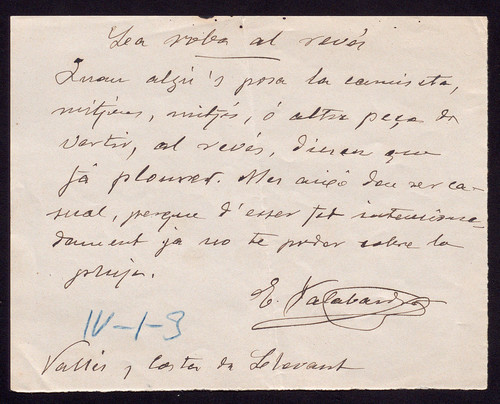 La roba al revés
Quan algú's posa la camiseta,
mitjons, mitjés, ó altre peça de
vestir, al revés, diuen que
fá plourer. Mes aixó deu ser ca-
sual, perque d'esser fet intenciona-
dament ja no te poder sobre la
pluja.
E. Valabardo
IV-1-3
Vallés y Costa de Llevant